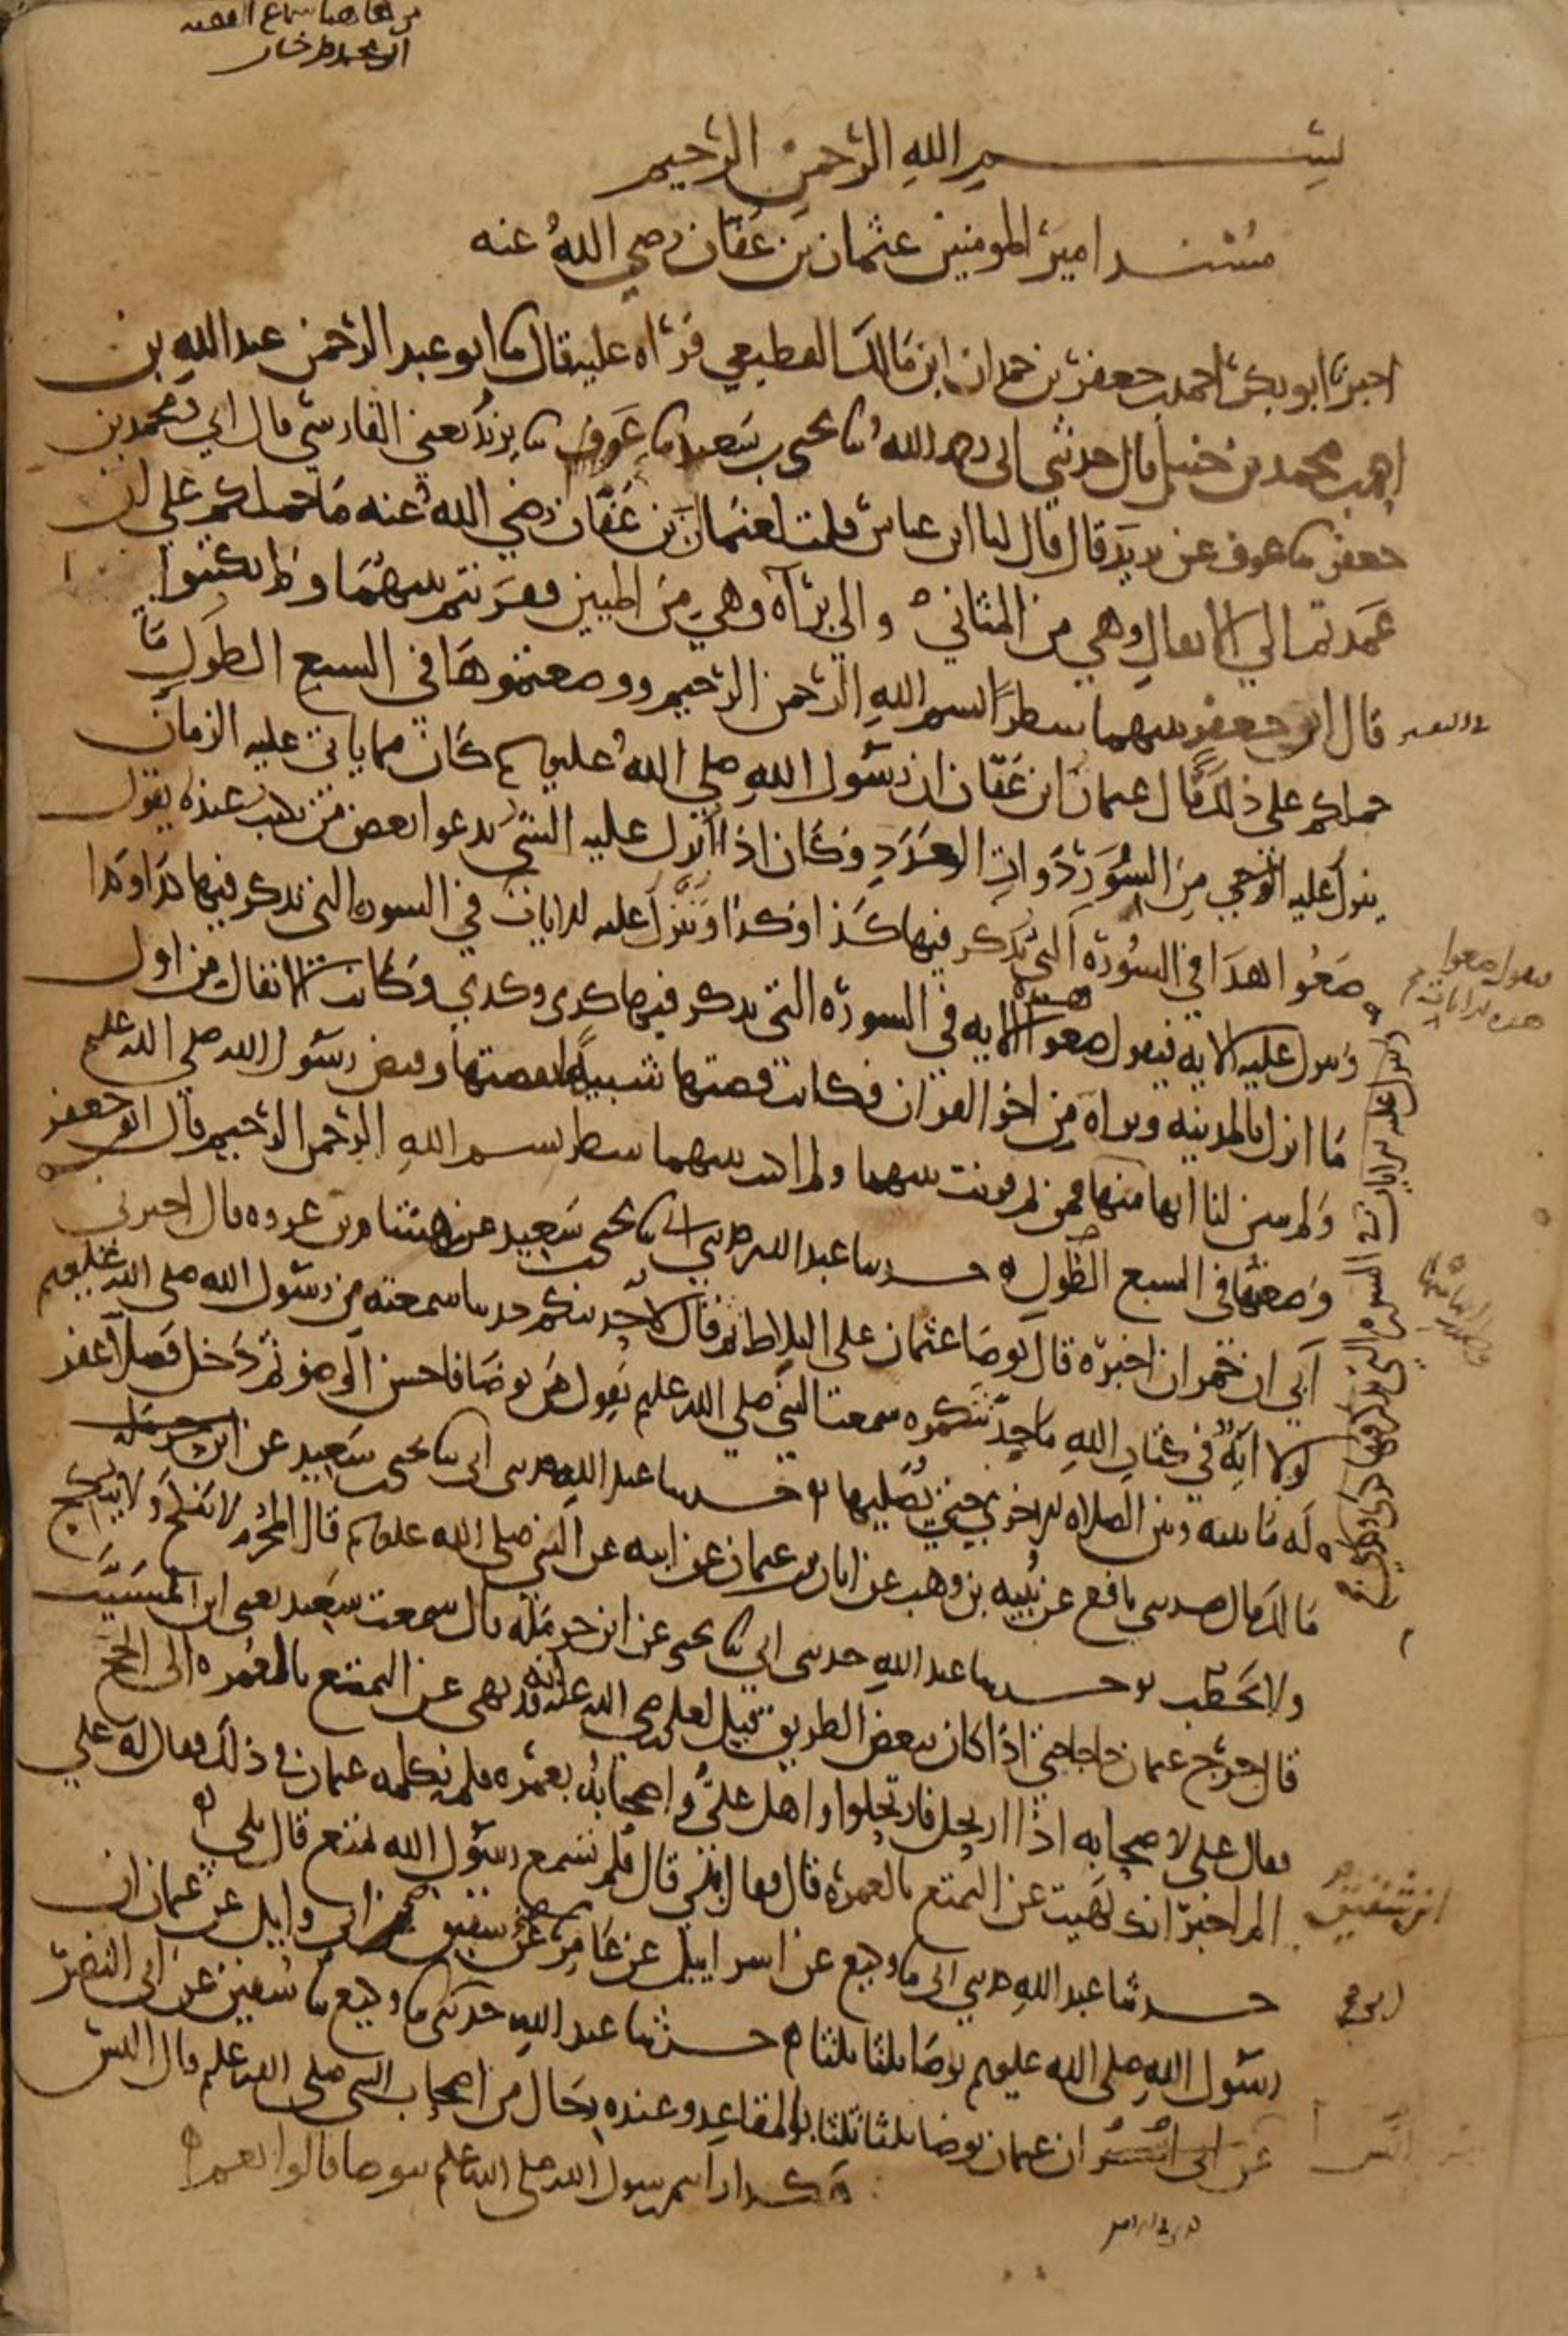 من هاهنا سماع الفقيه
ابو محمد
بسم الله الرحمن الرحيم
مسند امير المومنين عثمان بن عفان رضي الله عنه
اخبرنا ابو بكر احمد بن جعفر بن حمدان ابن مالك القطيعي قراه عليه قال نا ابو عبد الرحمن عبد الله بن
احمد بن محمد بن حنبل قال حدثني ابي رحمه الله نا يحيى بن سعيد نا عوف نا يزيد يعني الفارسي قال ابي ومحمد بن
جعفر نا عوف عن يزيد قال قال لنا ابن عباس قلت لعثمان بن عفان رضي الله عنه ما حملكم على ان
عمدتم الي الانفال وهي من المثاني والي براه وهي من المئين فقرنتم بينهما ولم يكتبوا
قال ابن جعفر بينهما سطرا بسم الله الرحمن الرحيم ووضعتموها في السبع الطول ما
حملكم على ذلك قال عثمان ابن عفان ان رسول الله صلي الله عليه وسلم كان مما ياتي عليه الزمان
ينزل عليه الوحي من السور ذوات العدد وكان اذا انزل عليه الشي يدعوا بعض من يكتب عنده يقول
ضعوا هذا في السوره التي يذكر فيها كذا وكذا وينزل عليه الايات في السوره التي يذكر فيها كذا وكذا
وينزل عليه الايه فيقول ضعوا هذه الايه في السوره التي يذكر فيها كذي وكذي وكانت الانفال من اول
ما انزل بالمدينه وبراه من اخر القران فكانت قصتها شبيها بقصتها وقبض رسول الله صلي الله عليه وسلم
ولم يبين لنا انها منها فمن ثم قرنت بينهما ولم اكتب بينهما سطر بسم الله الرحمن الرحيم قال ابن جعفر
ووضعتها في السبع الطول حدثنا عبد الله حدثني ابي نا يحيى بن سعيد عن هشام بن عروه قال اخبرني
ابي ان حمران اخبره قال توضا عثمان على البلاط ثم قال لاحدثنكم حديثا سمعته من رسول الله صلى الله عليه وسلم
لولا ايه في كتاب الله ما حدثتكموه سمعت النبي صلي الله عليه وسلم يقول من توضا فاحسن الوضو ثم دخل فصلى غفر
له ما بينه وبين الصلاه الاخرى حتى يصليها حدثنا عبد الله حدثني ابي نا يحيى بن سعيد عن
مالك قال حدثني نافع عن نبيه بن وهب عن ابان بن عثمان عن ابيه عن النبي صلى الله عليه وسلم قال المحرم لا ينكح ولا ينكح
ولا يخطب حدثنا عبد الله حدثني ابي نا يحيى عن ابن حرمله قال سمعت سعيد يعني ابن المسيب
قال خرج عثمان حاجا حتى اذا كان ببعض الطريق قيل لعلي رضي الله عنه انه قد نهى عن التمتع بالعمره الى الحج
فقال علي لاصحابه اذا ارتحل فارتحلوا واهل علي واصحابه بعمره فلم يكلمه عثمان في ذلك فقال له علي
الم اخبر انك نهيت عن التمتع بالعمره قال فقال بلى قال فلم تسمع رسول الله تمتع قال بلى
حدثنا عبد الله حدثني ابي نا وكيع عن اسراييل عن عامر عن شقيق ابي وايل عن عثمان ان
رسول الله صلى الله عليه وسلم توضا ثلثا ثلثا حدثنا عبد الله حدثني نا وكيع نا سفين عن ابي النضر
عن ابي انس ان عثمان توضا ثلثا ثلثا بالمقاعد وعنده رجال من اصحاب النبي صلى الله عليه وسلم قال اليس
هكذا رايتم رسول الله صلى الله عليه وسلم يتوضا قالوا نعم
يقول ضعوا
هذه الايات
ابن شقيق
ابي
انس